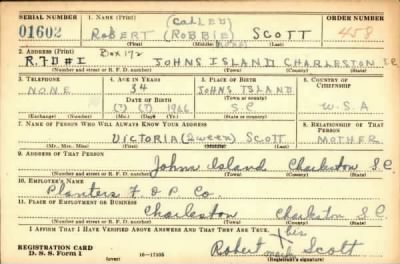 SERIAL NUMBER 1. NAME (Print) (CALLED) ORDER NUMBER
01602 ROBERT (ROBBIE) SCOTT 458
(First) (Middle) (Last)
2. ADDRESS (Print) Box 172
R.F.D #1 JOHNS ISLAND CHARLESTON S.C
(Number and street or R. F. D. number) (Town) (County) (State)
3. TELEPHONE 4. AGE IN YEARS 5. PLACE OF BIRTH 6. COUNTRY OF CITIZENSHIP
NONE 34 JOHNS ISLAND
DATE OF BIRTH (Town or county)
1906 S.C U.S.A
(Exchange) (Number) (Mo.) (Day) (Yr.) (State or country)
7. NAME OF PERSON WHO WILL ALWAYS KNOW YOUR ADDRESS 8. RELATIONSHIP OF THAT PERSON
VICTORIA (Queen) SCOTT MOTHER
(Mr., Mrs., Miss) (First) (Middle) (Last)
9. ADDRESS OF THAT PERSON
Johns Island Charleston S.C.
(Number and street or R. F. D. number) (Town) (County) (State)
10. EMPLOYER'S NAME
Planters F. & P. Co.
11. PLACE OF EMPLOYMENT OR BUSINESS
Charleston Charleston S.C.
(Number and street or R. F. D. number) (Town) (County) (State)
I AFFIRM THAT I HAVE VERIFIED ABOVE ANSWERS AND THAT THEY ARE TRUE.
his
Robert X Scott
mark
REGISTRATION CARD
D. S. S. Form 1 (over) 16—17105 (Registrant's signature)